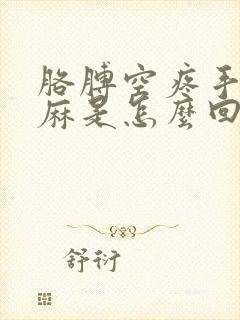 胳膊空疼手
麻是怎麼回
舒衍